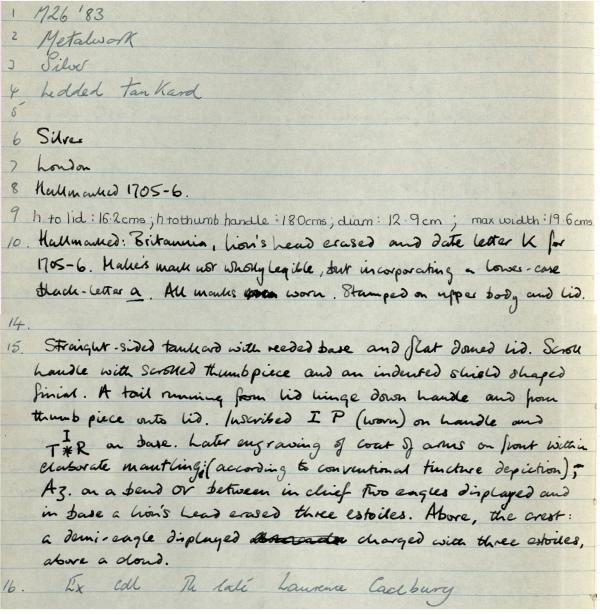 1 M26 '83
2 Metalwork
3 Silver
4 Lidded tankard
5
6 Silver
7 London
8 Hallmarked 1705-6.
9 h to lid: 16.2cms; h to thumb handle: 18.0cms; diam: 12.9cm; max width: 19.6cms
10. Hallmarked: Britannia, lion's head erased and date letter K for
1705-6. Maker's mark not wholly legible, but incorporating a lower-case
black-letter a. All marks worn. Stamped on upper body and lid.
14.
15. Straight-sided tankard with reeded base and flat domed lid. Scroll
handle with scrolled thumbpiece and an indented shield shaped
finial. A tail running from lid hinge down handle and from
thumb piece onto lid. Inscribed I P (worn) on handle and
I
T*R on base. Later engraving of coat of arms on front within
elaborate mantling; (according to conventional tincture depiction);-
Az. on a bend or between in chief two eagles displayed and
in base a lion's head erased three estoiles. Above, the crest:
a demi-eagle displayed charged with three estoiles,
above a cloud.
16. Ex coll The late Laurence Cadbury